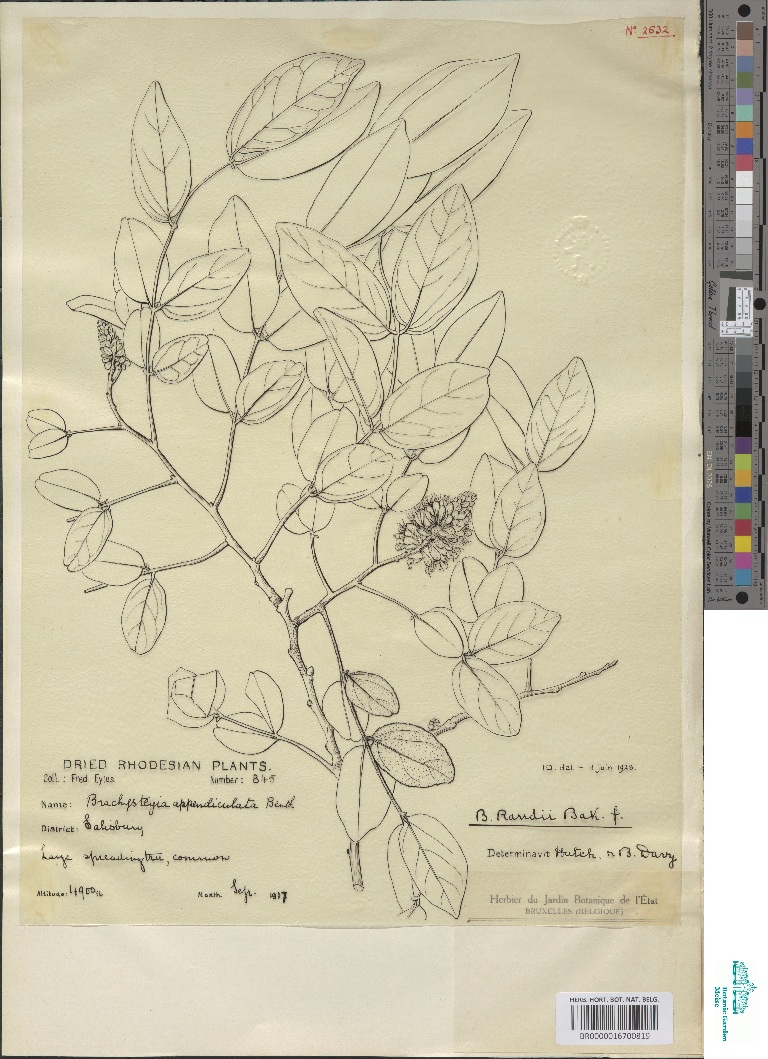 Nº 2632
DRIED RHODESIAN PLANTS.
Coll.: Fred. Eyles. Number: 845
Name: Brachystegia appendiculata Benth
District: Salisbury
Large spreading tree, common
Altitude: 4900 ft Month. Sept. 1917
ID. del. – 11 juin 1926.
B. Randii Bak. f.
Determinavit Hutch. n B. Davy
Herbier du Jardin Botanique de l'État
BRUXELLES (BELGIQUE)
HERB. HORT. BOT. NAT. BELG.
BR0000016700819
Botanic Garden
Meise